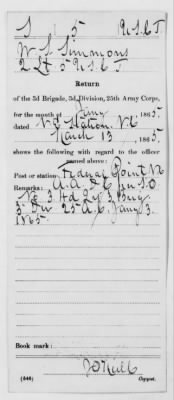 S 5 U.S.C.T.
W. S. Simmons
2 Lt 5 U.S.C.T.
Return
of the 3d Brigade, 3d Division, 25th Army Corps,
for the month of Jany, 1865.
dated N.E. Station, Va
March 13, 1865
shows the following with regard to the officer
named above:
Post or station: Federal Point N.C.
Remarks: A.A.D.C. per S.O.
No 3 Hd Qrs 3 Brig
3 Div 25 A.C. Jany 3.
1865
Book mark:
(546) Copyist.